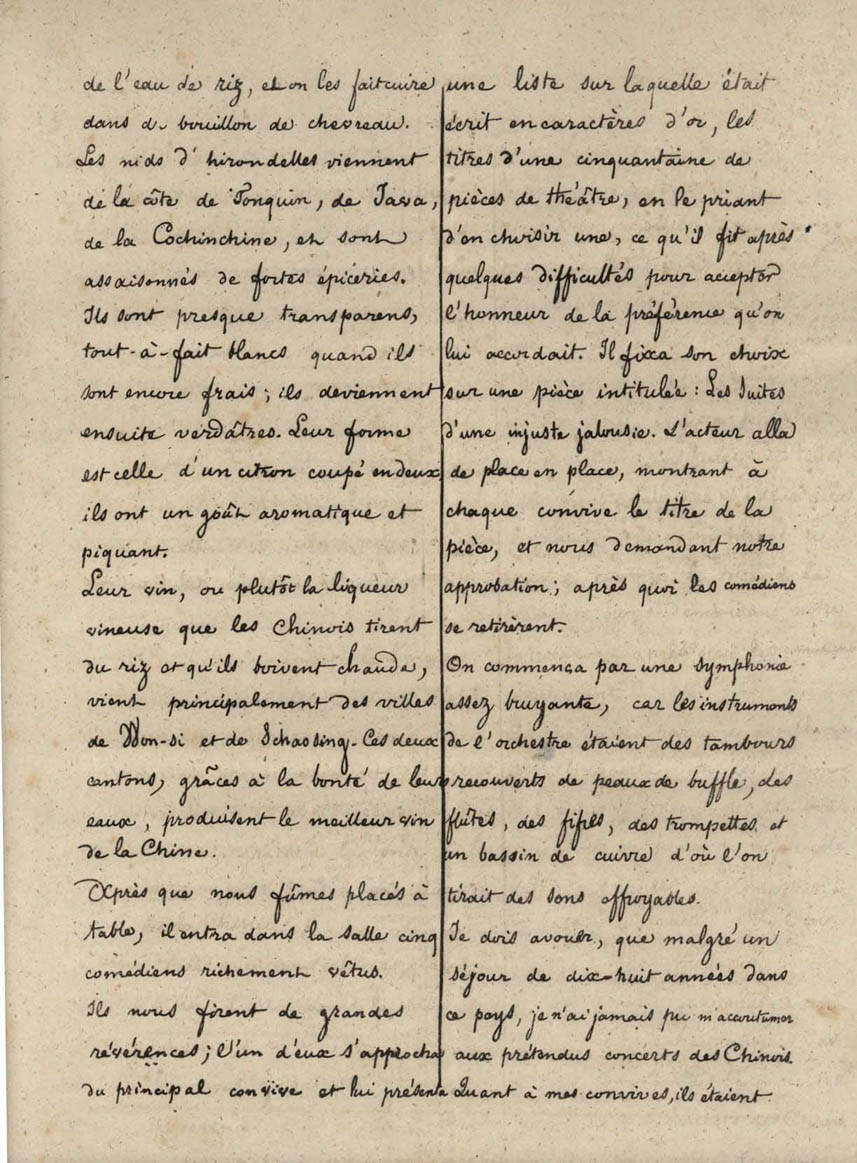 de l'eau de riz, et on les fait cuire
dans du bouillon de chevreau.
Les nids d'hirondelles viennent
de la côte de Tonquin, de Java,
de la Cochinchine, et sont
assaisonnés de fortes épiceries.
Ils sont presque transparens,
tout-à-fait blancs quand ils
sont encore frais ; ils deviennent
ensuite verdâtres. Leur forme
est celle d'un citron coupé en deux
ils ont un goût aromatique et
piquant.
Leur vin, ou plutôt la liqueur
vineuse que les Chinois tirent
du riz et qu'ils boivent chaude,
vient principalement des villes
de Won-si et de Schaosing. Ces deux
cantons, grâces à la bonté de leurs
eaux, produisent le meilleur vin
de la Chine.
Après que nous fûmes placés à
table, il entra dans la salle cinq
comédiens richement vêtus.
Ils nous firent de grandes
révérences ; l'un d'eux s'approcha
du principal convive et lui présenta
une liste sur laquelle était
écrit en caractères d'or, les
titres d'une cinquantaine de
pièces de théâtre, en le priant
d'en choisir une, ce qu'il fit après
quelques difficultés pour accepter
l'honneur de la préférence qu'on
lui accordait. Il fixa son choix
sur une pièce intitulée : Les Suites
d'une injuste jalousie. L'acteur alla
de place en place, montrant à
chaque convive le titre de la
pièce, et nous demandant notre
approbation ; après quoi les comédiens
se retirèrent.
On commença par une symphonie
assez bruyante, car les instruments
de l'orchestre étaient des tambours
recouverts de peaux de buffle, des
flûtes, des fifres, des trompettes et
un bassin de cuivre d'où l'on
tirait des sons effroyables.
Je dois avouer, que malgré un
séjour de dix-huit années dans
ce pays, je n'ai jamais pu m'accoutumer
aux prétendus concerts des Chinois.
Quant à mes convives, ils étaient